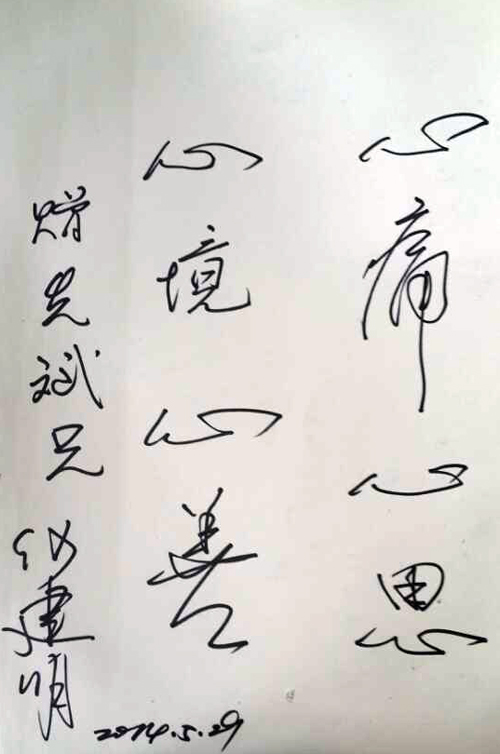 心痛心思
心境心善
赠先斌兄
仪建明
2014.5.29